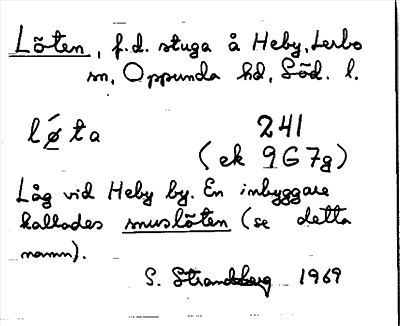 Löten, f.d. stuga å Heby, Lerbo
sn, Oppunda hd, Söd. l.
lǿta 241
(ek 9G7g)
Låg vid Heby by. En inbyggare
kallades muslöten (se detta
namn).
S. Strandberg 1969